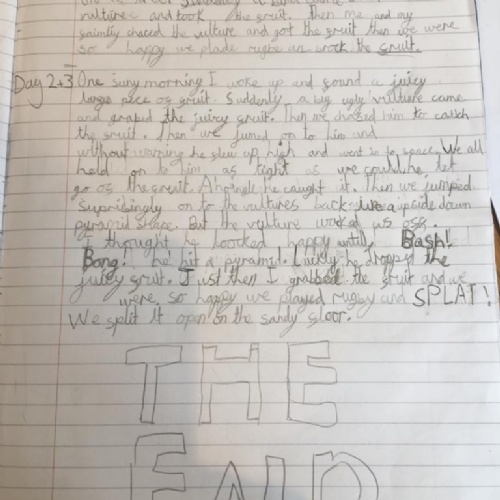 vulture and took the gruit. Then me and my
gamily chaced the vulture and got the gruit then we were
so happy we plade rugbe an the gruit.
Day 2+3 One suny morning I woke up and sound a juicy
large pece os gruit. Suddenly a big ugly vulture came
and grabed the juicy gruit. Then we chased him to catch
the gruit. Then we jumed on to him and
without warning he slew up high and went in to space. We all
held on to him as tight as we could he let
go os the gruit. he caught it. Then we jumped
Suprisingly on to the vultures back like a upside down
pyramid shape. But the vulture us oss.
I thought he loocked happy until Bash!
Bong! he hit a pyramid. Luckly he dropp the
juicy gruit. Just then I grabbed the gruit and we
were so happy we played rugby and SPLAT!
We split it open on the sandy gloor.
THE
END